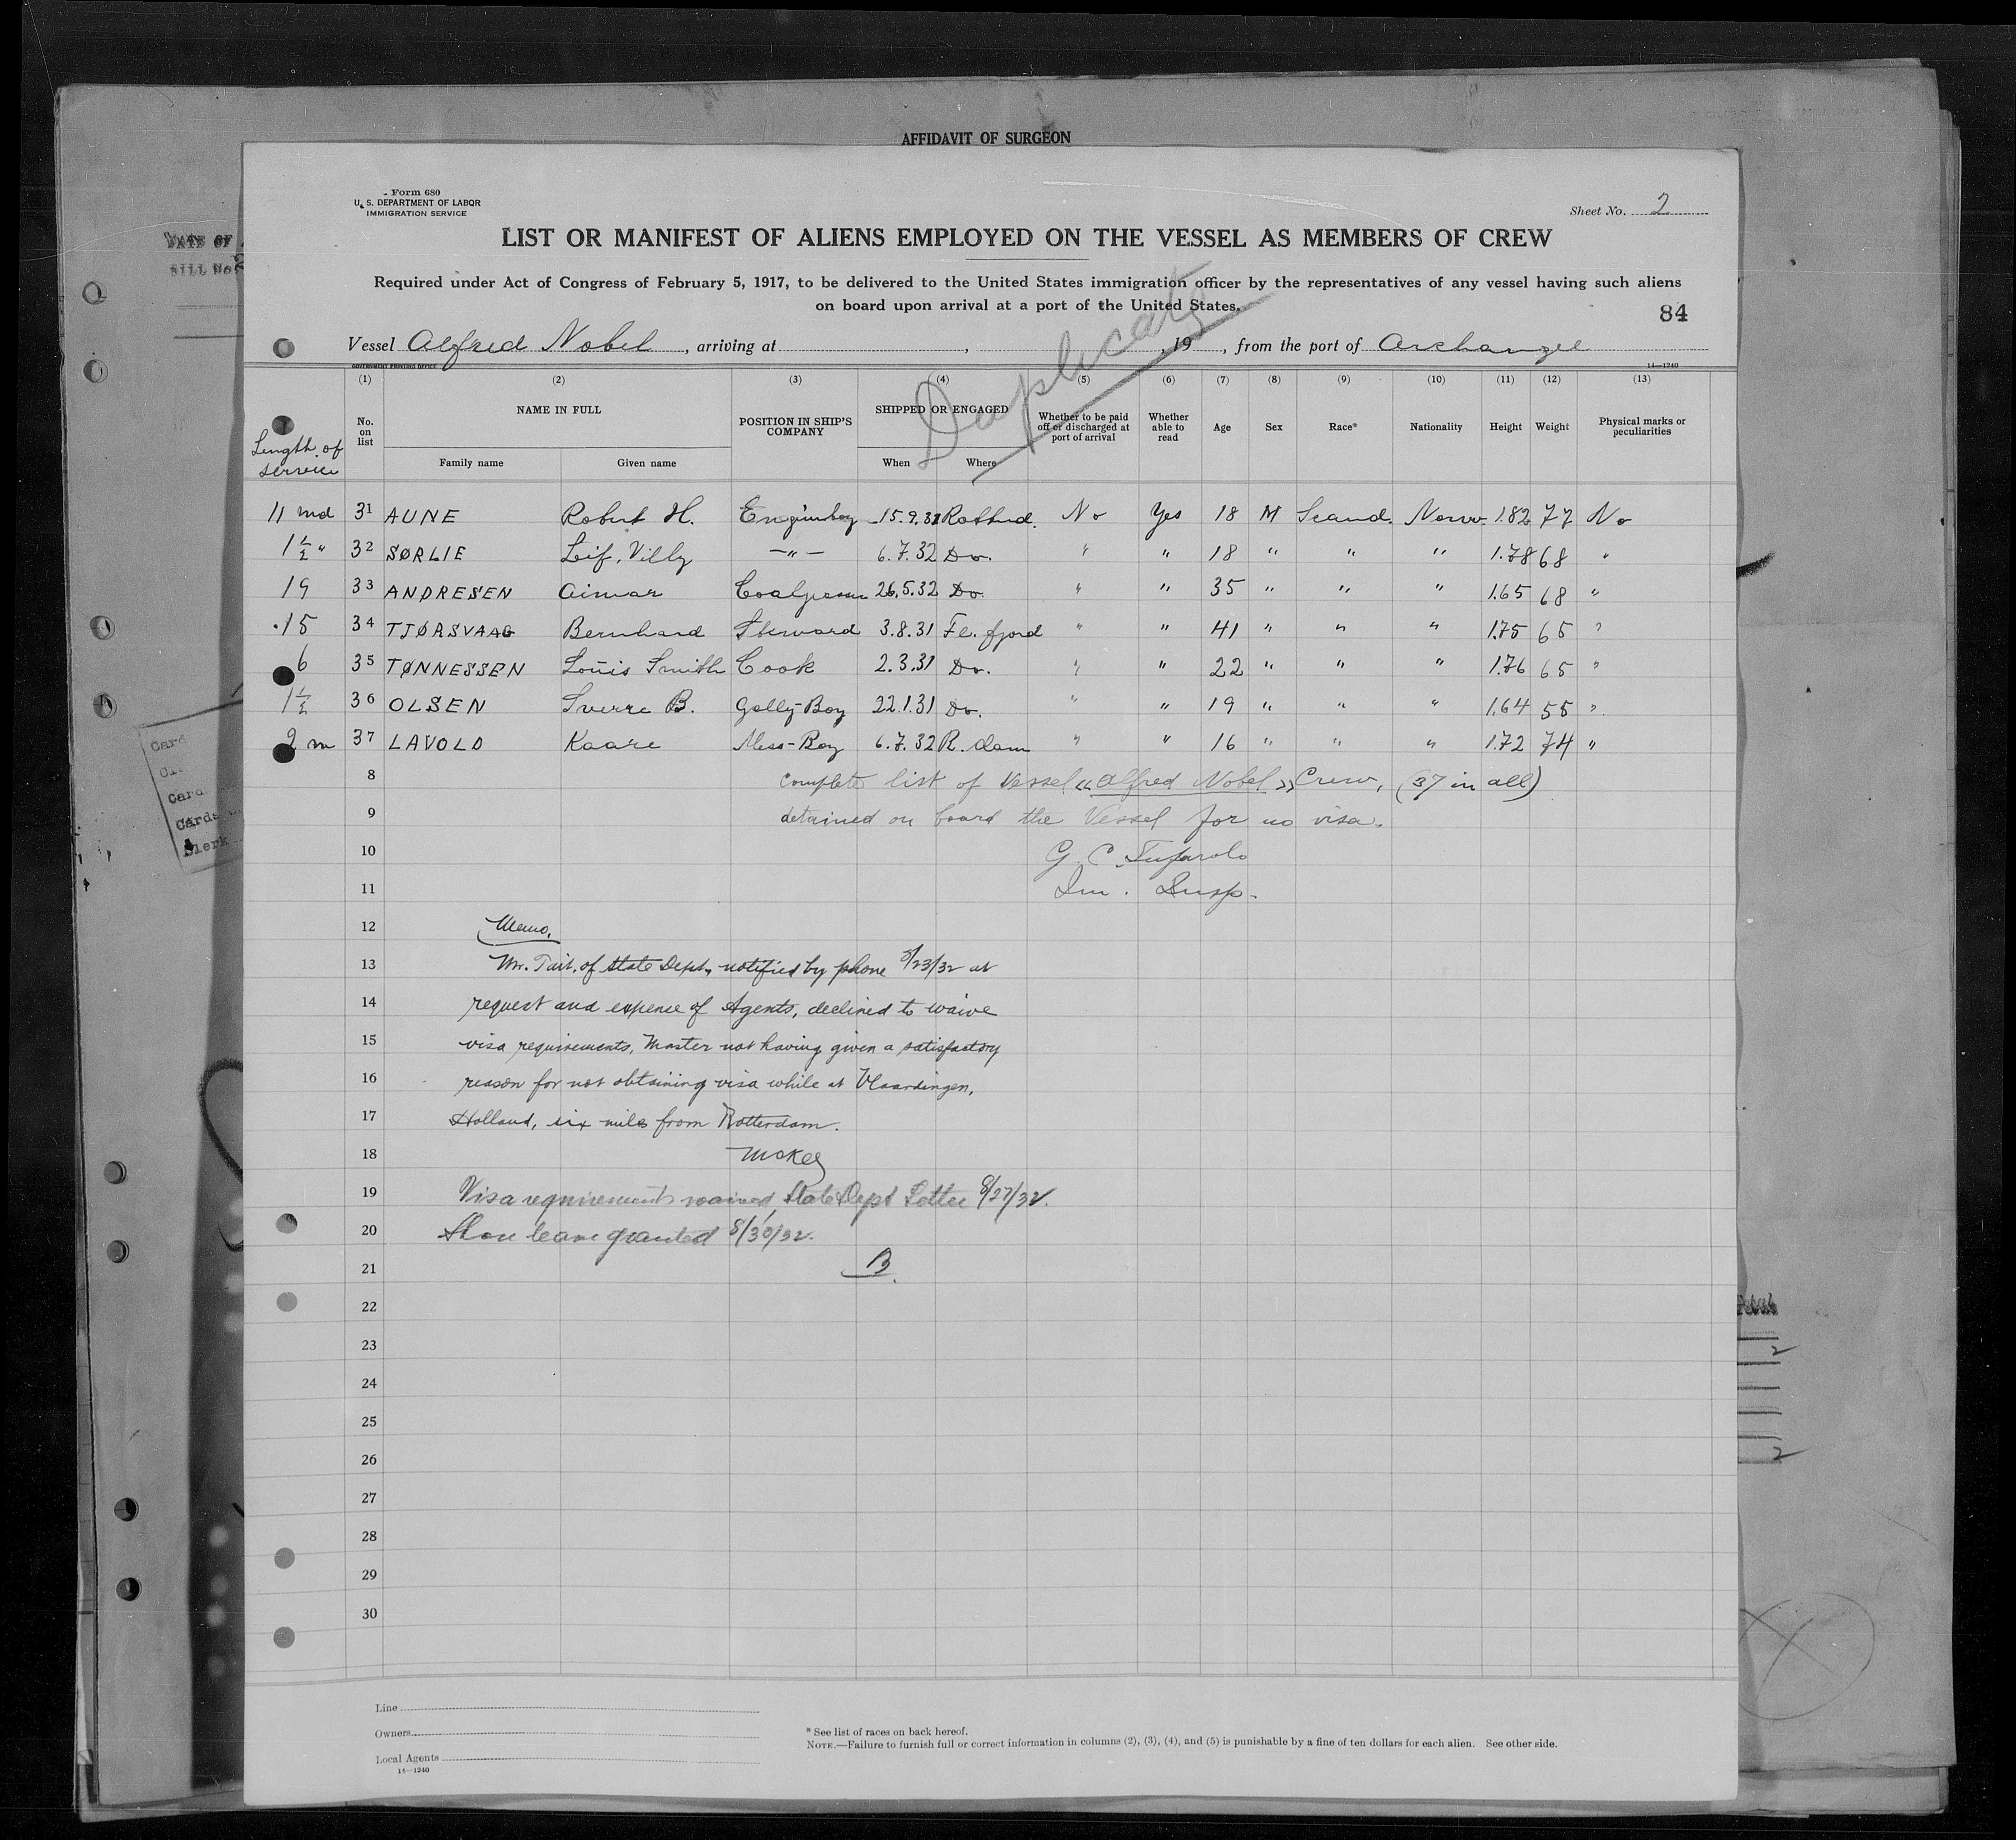 AFFIDAVIT OF SURGEON
Form 680
U. S. DEPARTMENT OF LABOR
IMMIGRATION SERVICE
Sheet No. 2
LIST OR MANIFEST OF ALIENS EMPLOYED ON THE VESSEL AS MEMBERS OF CREW
Required under Act of Congress of February 5, 1917, to be delivered to the United States immigration officer by the representatives of any vessel having such aliens
on board upon arrival at a port of the United States.
84
Duplicate
Vessel Alfred Nobel, arriving at , , 19 , from the port of Archangel
GOVERNMENT PRINTING OFFICE 14—1240
(1) (2) (3) (4) (5) (6) (7) (8) (9) (10) (11) (12) (13)
Length of service No. on list NAME IN FULL POSITION IN SHIP'S COMPANY SHIPPED OR ENGAGED Whether to be paid off or discharged at port of arrival Whether able to read Age Sex Race* Nationality Height Weight Physical marks or peculiarities
Family name Given name When Where
11 md 31 AUNE Robert H. Engineboy 15.9.31 Rottrd. No Yes 18 M Scand. Norw. 1.82 77 No
1½ " 32 SØRLIE Leif, Villy —"— 6.7.32 Do. " " 18 " " " 1.78 68 "
19 33 ANDRESEN Aimar 26.5.32 Do. " " 35 " " " 1.65 68 "
15 34 TJØRSVAAG Bernhard Steward 3.8.31 Fl. fjord " " 41 " " " 1.75 65 "
6 35 TØNNESSEN Louis Smith Cook 2.3.31 Do. " " 22 " " " 1.76 65 "
1½ 36 OLSEN Sverre B. Gally-Boy 22.1.31 Do. " " 19 " " " 1.64 55 "
2 m 37 LAVOLD Kaare Mess-Boy 6.7.32 R. dam " " 16 " " " 1.72 74 "
8 Complete list of Vessel «Alfred Nobel» Crew, (37 in all)
9 detained on board the Vessel for no visa.
10 G. C.
11 Im. Insp.
12 Memo.
13 Mr. Tait, of State Dept., notified by phone 8/23/32 at
14 request and expense of Agents, declined to waive
15 visa requirements, Master not having given a satisfactory
16 reason for not obtaining visa while at Vlaardingen,
17 Holland, six miles from Rotterdam.
18 McKey
19 Visa requirements waived, State Dept Letter 8/27/32.
20 Shore leave granted 8/30/32.
21 B.
22
23
24
25
26
27
28
29
30
Line
Owners
Local Agents
14—1240
* See list of races on back hereof.
NOTE.—Failure to furnish full or correct information in columns (2), (3), (4), and (5) is punishable by a fine of ten dollars for each alien. See other side.